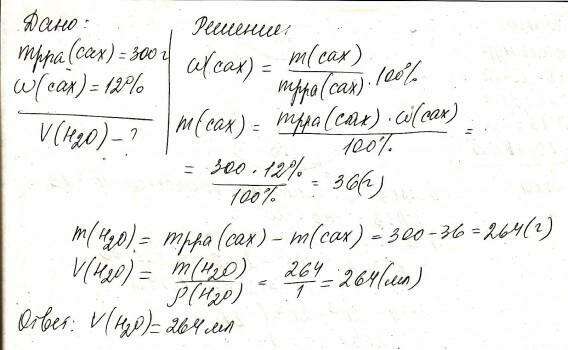 Дано:
mрра(сах)=300г
ω(сах)=12%
V(H2O)-?
Решение:
ω(сах) = m(сах)/mрра(сах) · 100%
m(сах) = mрра(сах)·ω(сах)/100% =
= 300·12%/100% = 36(г)
m(H2O) = mрра(сах) - m(сах) = 300-36 = 264(г)
V(H2O) = m(H2O)/ρ(H2O) = 264/1 = 264(мл)
Ответ: V(H2O)=264мл